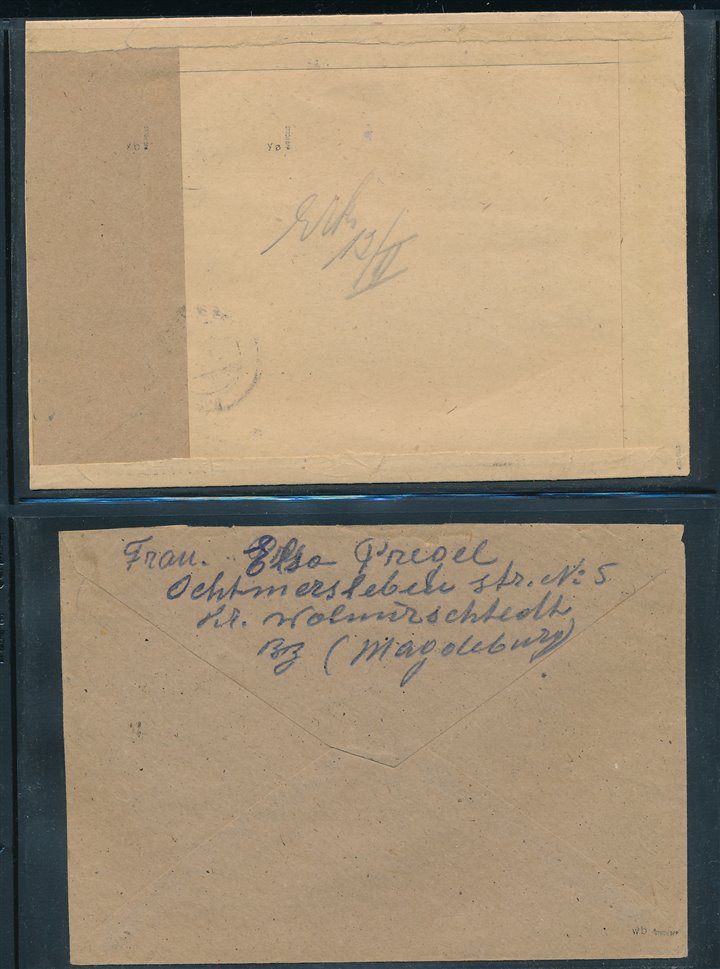 xb
ya
Erh.
12/II
Frau. Elsa Pregel
Ochtmersleben str. № 5
Kr. Wolmürschtedt
BZ (Magdeburg)
wb